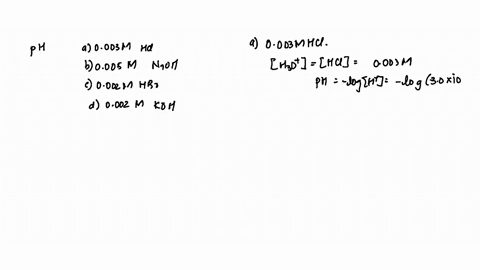 pH a) 0.003M HCl
b) 0.005 M NaOH
c) 0.002M HBr
d) 0.002 M KOH
a) 0.003M HCl.
[H3O+] = [HCl] = 0.003M
pH = -log[H+] = -log (3.0×10